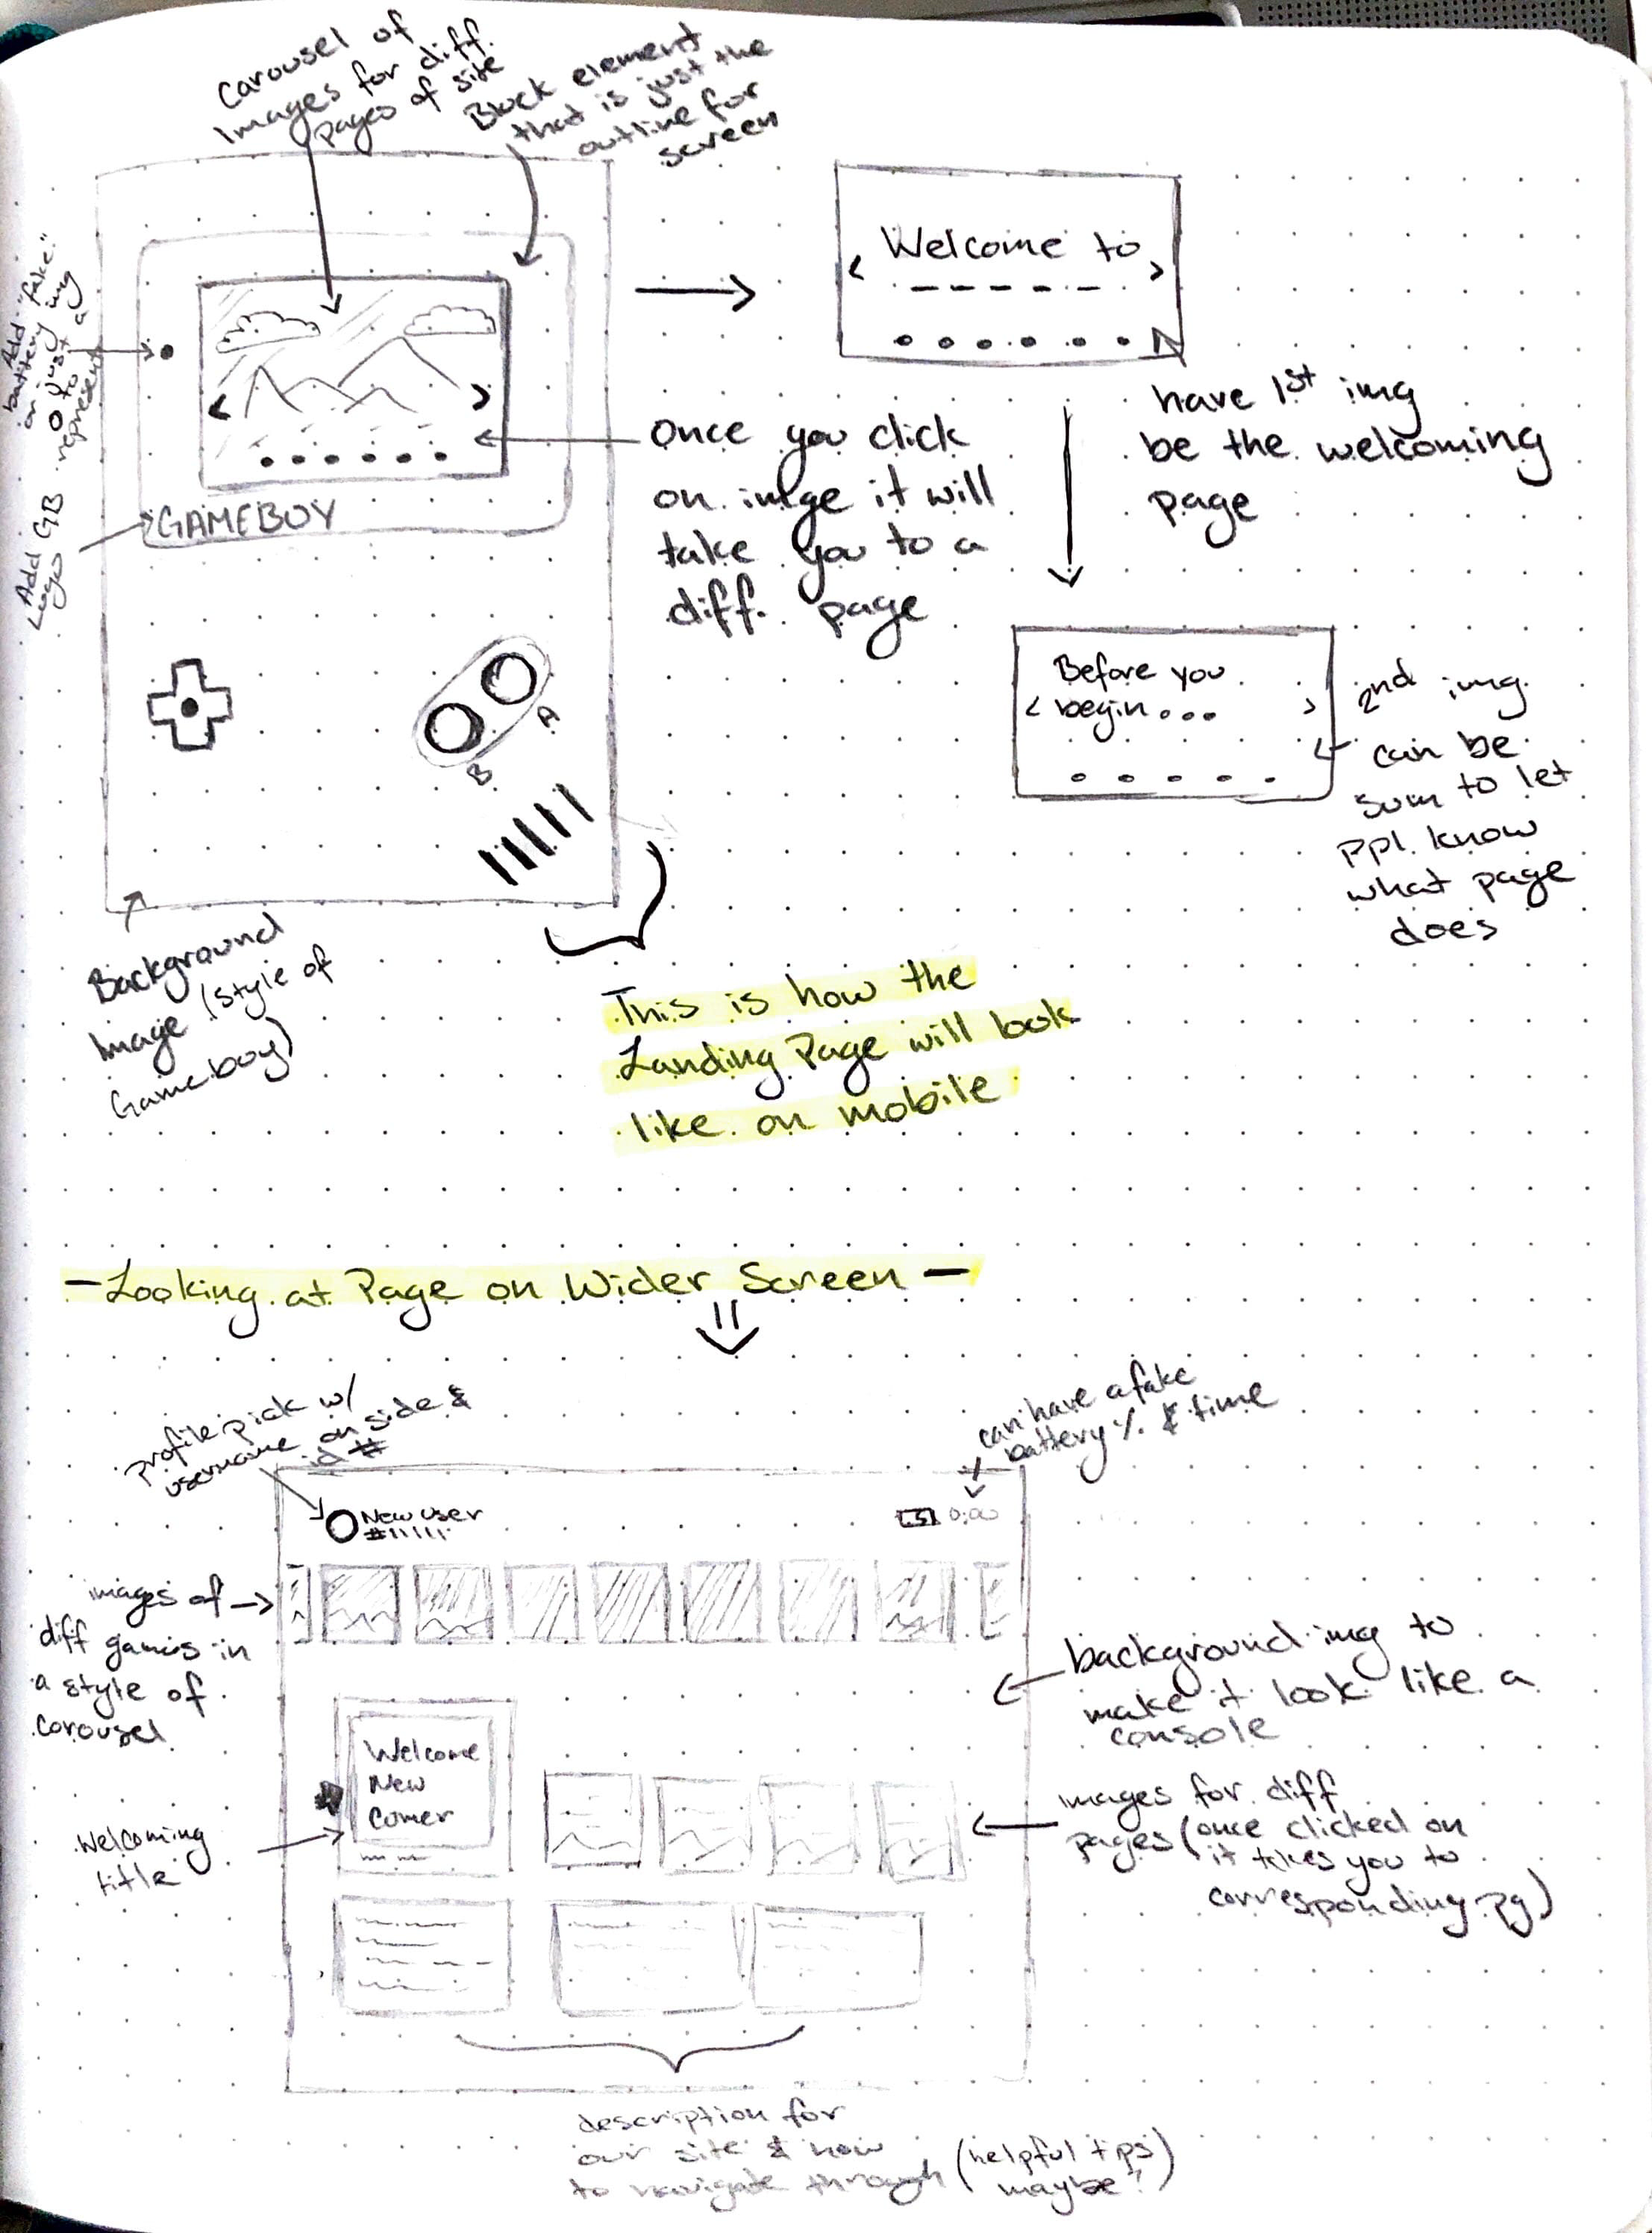 Carousel of
Images for diff.
pages of site
Block element
that is just the
outline for
screen
Add "fake"
battery img
or just a
o to
represent
Add GB
Logo
GAMEBOY
A
B
Background
Image (style of
Gameboy)
< Welcome to >
once you click
on imge it will
take you to a
diff. page
have 1st img
be the welcoming
page
Before you
< begin... >
2nd img
can be
sum to let
ppl. know
what page
does
This is how the
Landing Page will look
like on mobile
- Looking at Page on Wider Screen -
profile pick w/
username on side &
id #
can have a fake
battery % & time
New user
#11111
0:00
images of
diff games in
a style of
corousel
background img to
make it look like a
console
Welcome
New
Comer
Welcoming
title
images for diff
pages (once clicked on
it takes you to
corresponding pg)
description for
our site & how
to navigate through (helpful tips
maybe?)